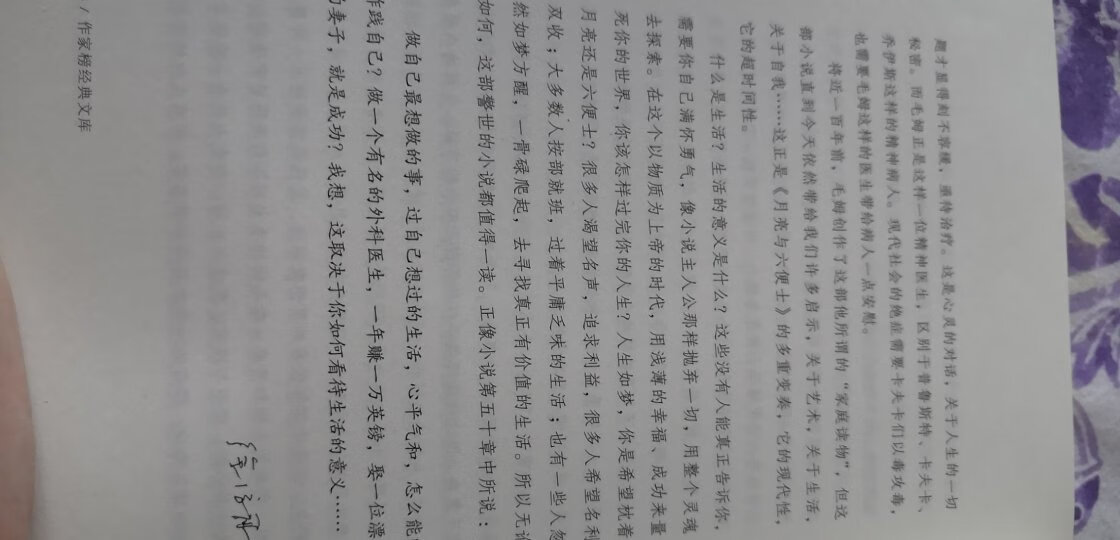 题才显得刻不容缓，亟待治疗。这是心灵的对话，关于人生的一切
秘密。而毛姆正是这样一位精神医生，区别于普鲁斯特、卡夫卡、
乔伊斯这样的精神病人。现代社会的绝症需要卡夫卡们以毒攻毒，
也需要毛姆这样的医生带给病人一点安慰。
将近一百年前，毛姆创作了这部他所谓的“家庭读物”，但这
部小说直到今天依然带给我们许多启示，关于艺术，关于生活，
关于自我……这正是《月亮与六便士》的多重变奏，它的现代性，
它的超时间性。
什么是生活？生活的意义是什么？这些没有人能真正告诉你，
需要你自己满怀勇气，像小说主人公那样抛弃一切，用整个灵魂
去探索。在这个以物质为上帝的时代，用浅薄的幸福、成功来量
死你的世界，你该怎样过完你的人生？人生如梦，你是希望枕着
月亮还是六便士？很多人渴望名声，追求利益，很多人希望名利
双收；大多数人按部就班，过着平庸乏味的生活；也有一些人忽
然如梦方醒，一骨碌爬起，去寻找真正有价值的生活。所以无论
如何，这部警世的小说都值得一读。正像小说第五十章中所说：
做自己最想做的事，过自己想过的生活，心平气和，怎么能
作践自己？做一个有名的外科医生，一年赚一万英镑，娶一位漂
的妻子，就是成功？我想，这取决于你如何看待生活的意义……
/ 作家榜经典文库